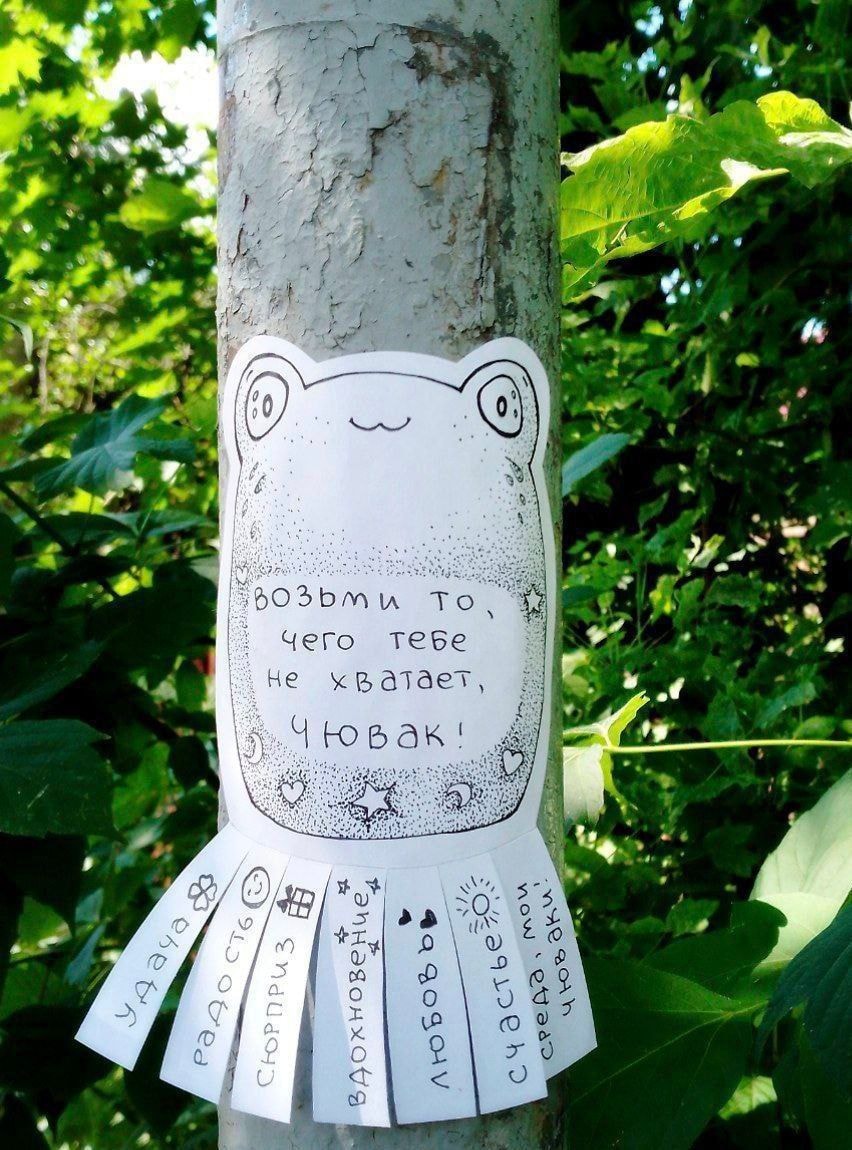 возьми то,
чего тебе
не хватает,
чювак!
удача
радость
сюрприз
вдохновение
любовь
счастье
среда, мои
чюваки!